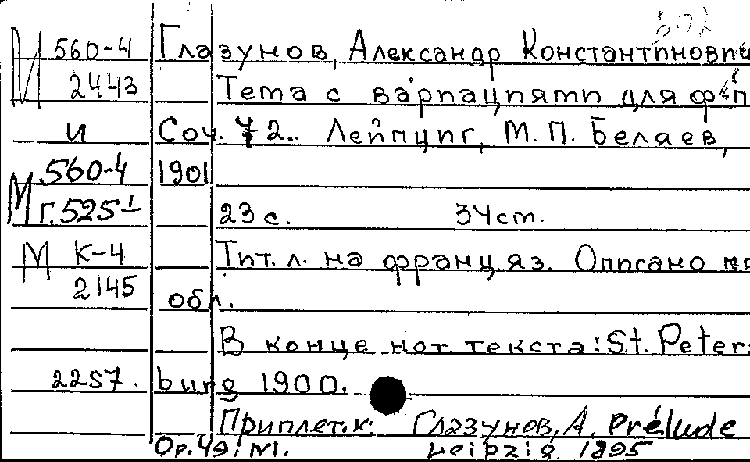 М 560-4 Глазунов, Александр Константинович
2443 Тема с вариациями для ф-п
и Соч. 72. Лейпциг, М. П. Беляев,
560-4 1901
М Г.525-1 23 с. 34 см.
М К-4 Тит. л. на франц. яз. Описано по
2145 обл.
В конце нот. текста: St. Peters
2257. burg 1900.
Приплет. к: Глазунов, А. Prélude
Op. 49. №1. Leipzig 1895